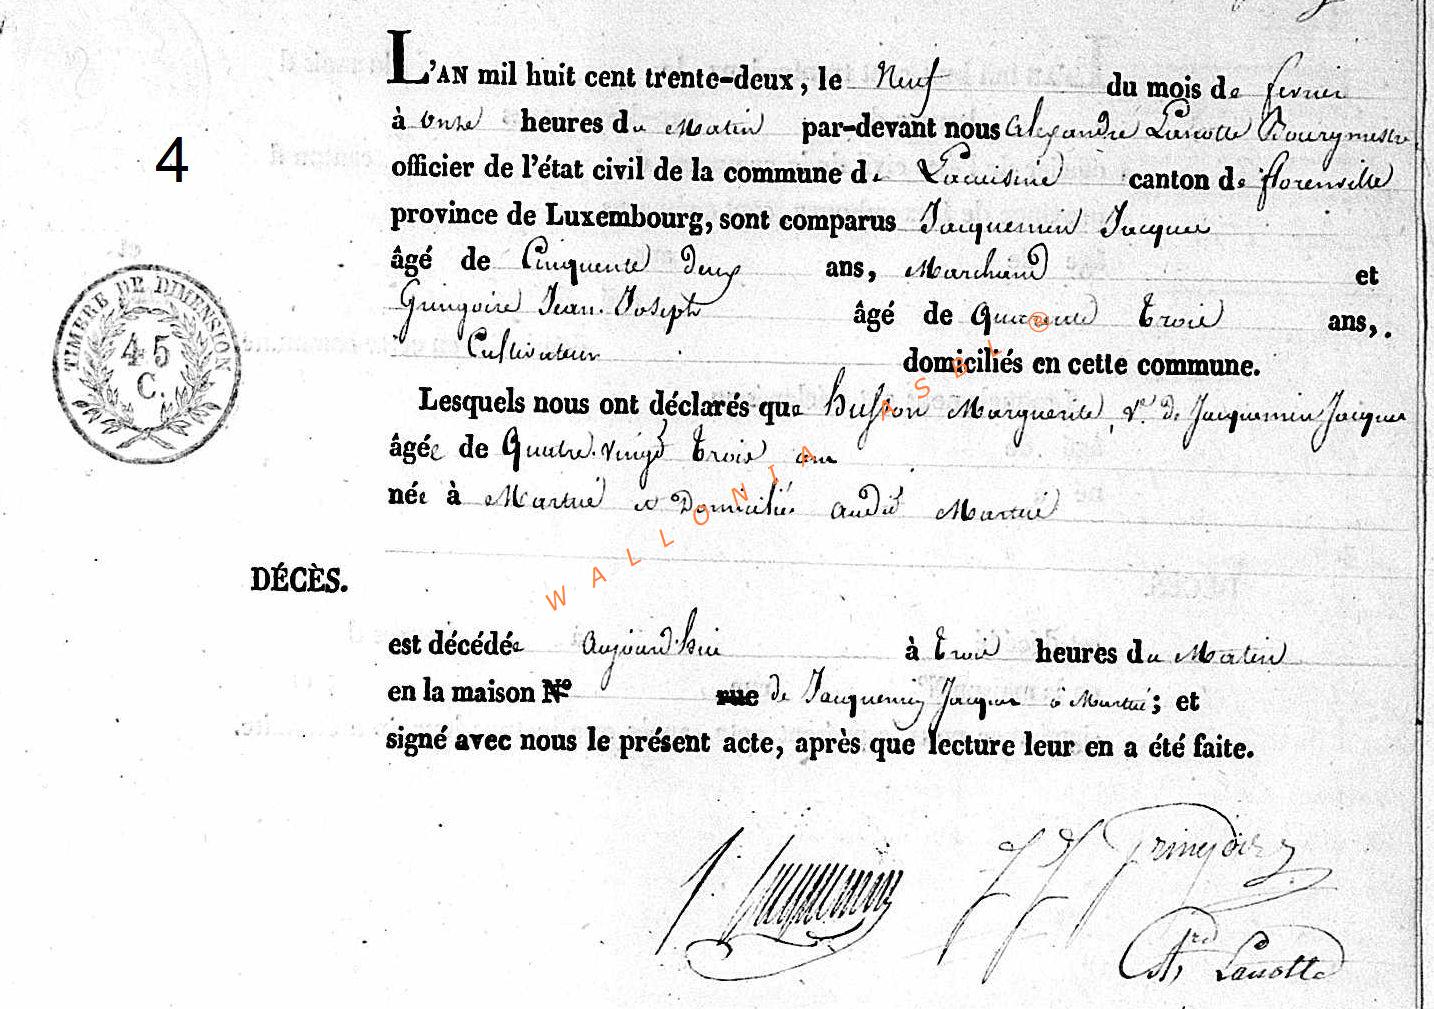 L'AN mil huit cent trente-deux, le Neuf du mois de fevrier
à onze heures du Matin par-devant nous Alexandre Lanotte Bourgmestre
4
officier de l'état civil de la commune de Lacuisine canton de florenville
province de Luxembourg, sont comparus Jacquemin Jacques
âgé de Cinquente deux ans, Marchand et
Gringoire Jean Joseph âgé de Quarente Trois ans,
Cultivateur domiciliés en cette commune.
TIMBRE DE DIMENSION
45
C.
Lesquels nous ont déclarés que husson Marguerite, Ve. de Jacquemin Jacques
âgée de Quatre-vingt Trois ans
née à Martué et Domiciliée audit Martué
WALLONIA ASBL ®
DÉCÈS.
est décédée aujourd'hui à Trois heures du Matin
en la maison N° rue de Jacquemin Jacques à Martué; et
signé avec nous le présent acte, après que lecture leur en a été faite.
J Jacquemin J J Gringoire
Alxdre Lanotte